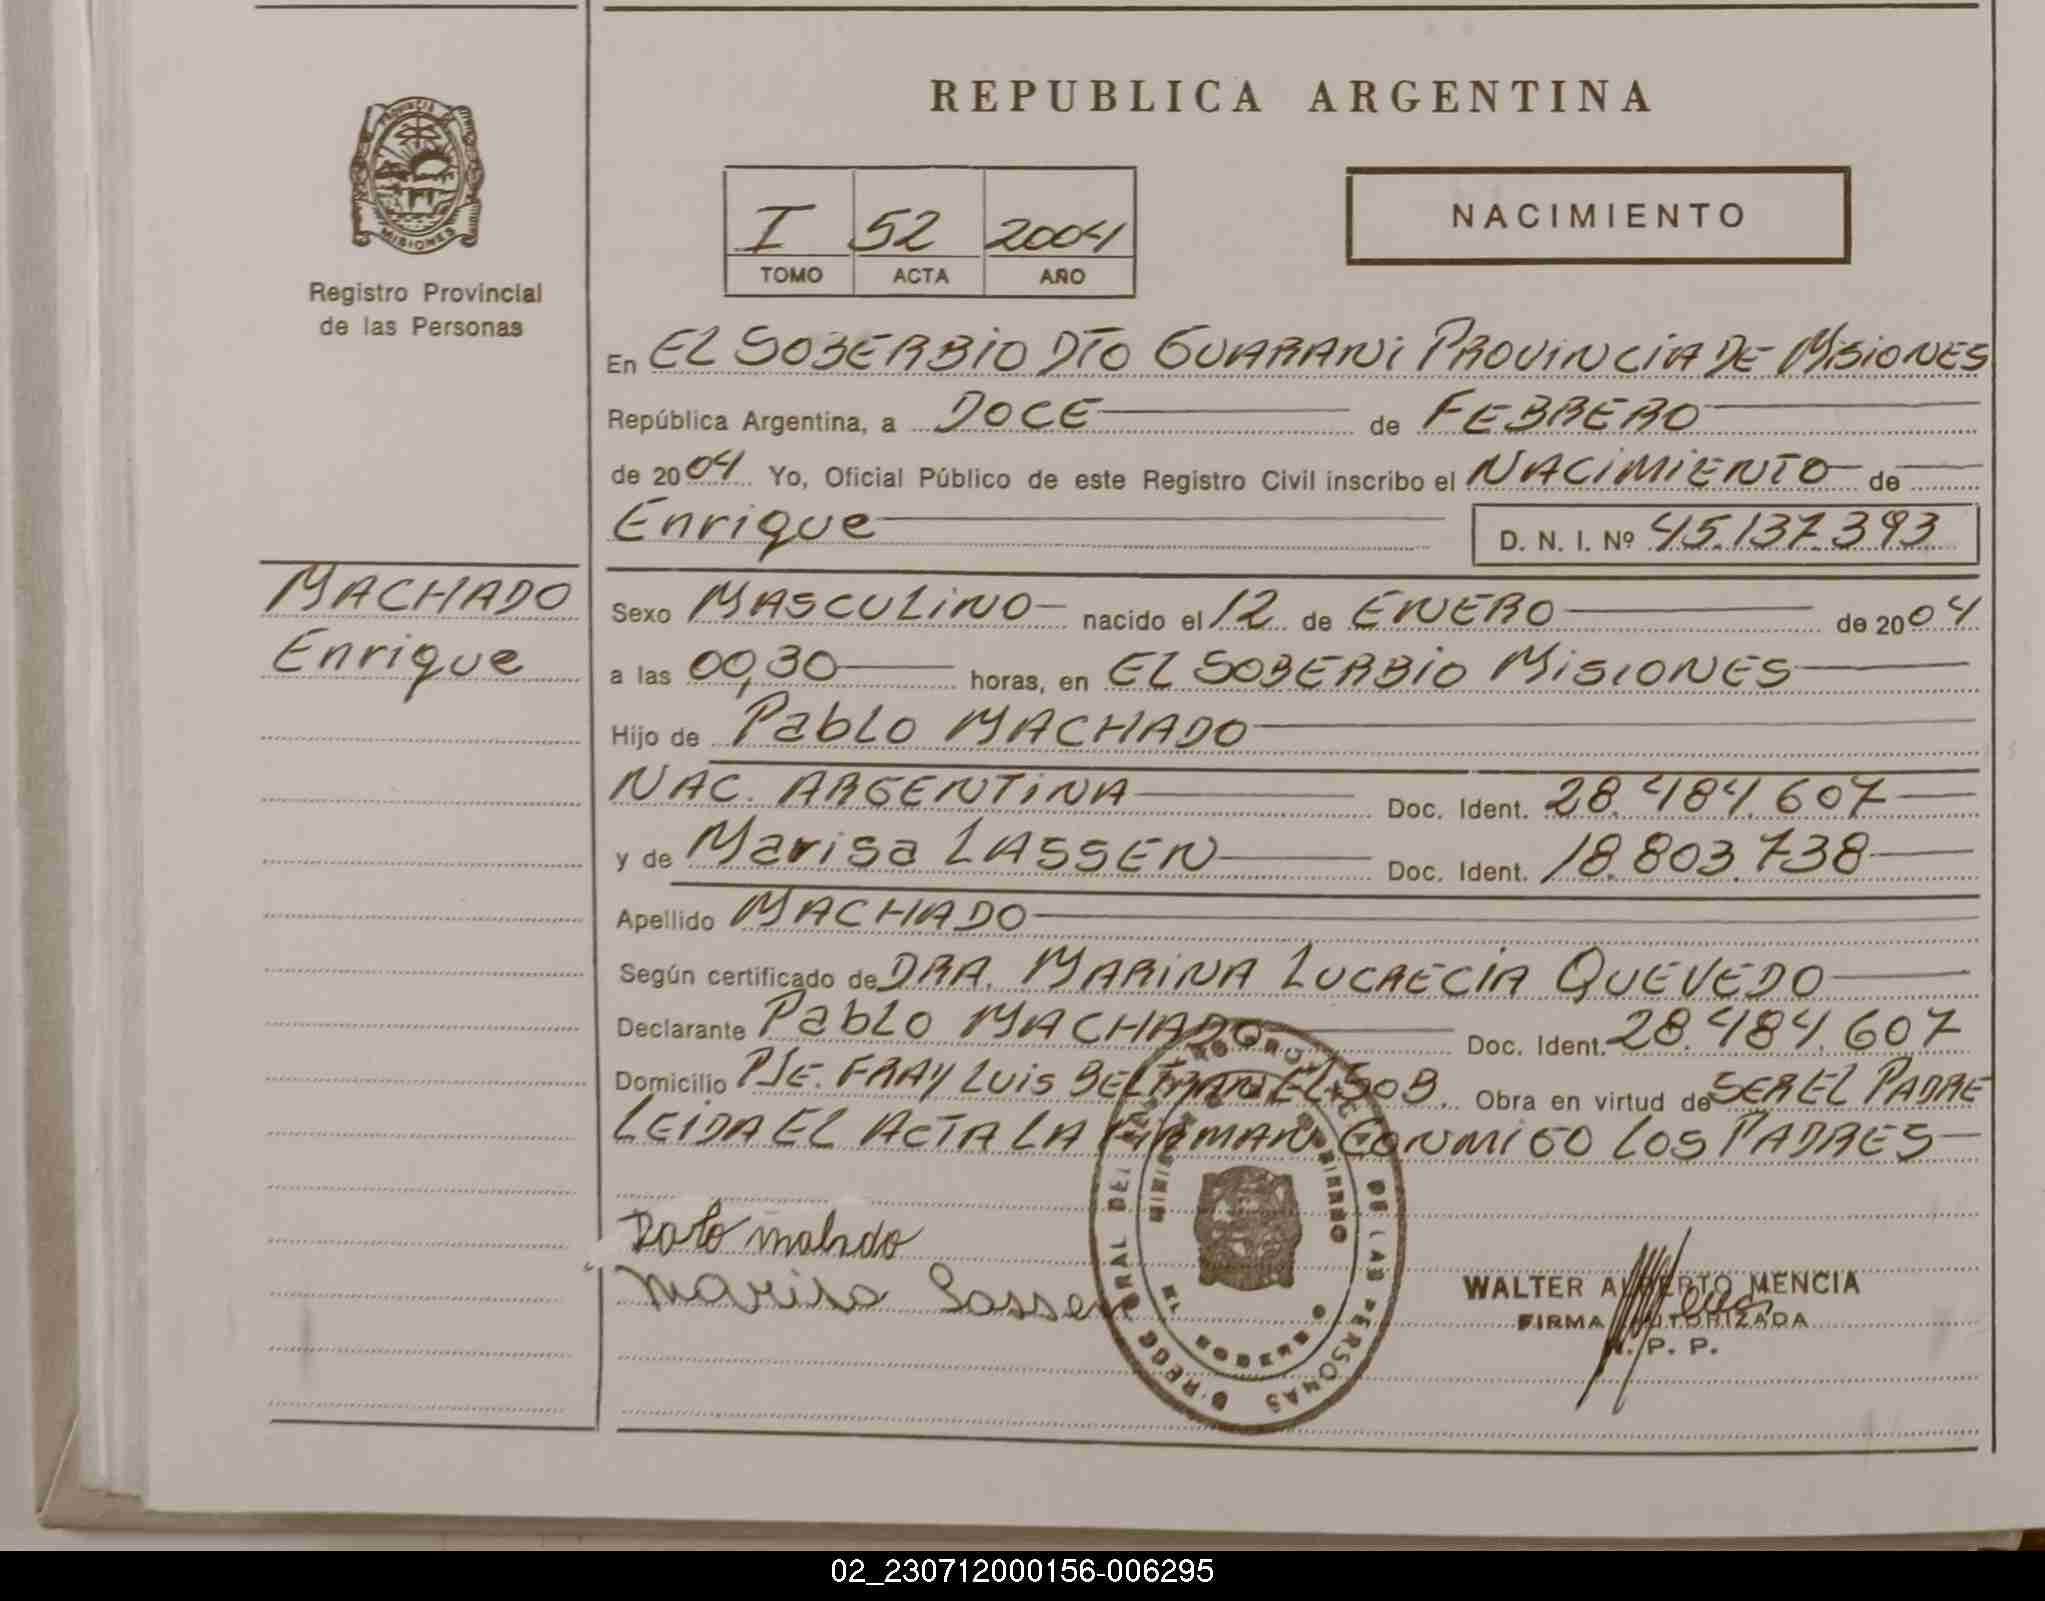 REPUBLICA ARGENTINA
PROVINCIA
MISIONES
Registro Provincial
de las Personas
I 52 2004
TOMO ACTA AÑO
NACIMIENTO
En EL SOBERBIO DTO GUARANI PROVINCIA DE MISIONES
República Argentina, a DOCE de FEBRERO
de 2004 Yo, Oficial Público de este Registro Civil inscribo el NACIMIENTO de
Enrique D. N. I. Nº 45.137.393
MACHADO
Enrique
Sexo MASCULINO nacido el 12 de ENERO de 2004
a las 00,30 horas, en EL SOBERBIO MISIONES
Hijo de Pablo MACHADO
NAC. ARGENTINA Doc. Ident. 28.484.607
y de Marisa LASSEN Doc. Ident. 18.803.738
Apellido MACHADO
Según certificado de DRA. MARINA LUCRECIA QUEVEDO
Declarante Pablo MACHADO Doc. Ident. 28.484.607
Domicilio PJE. FRAY LUIS BELTRAN EL SOB. Obra en virtud de SER EL PADRE
LEIDA EL ACTA LA FIRMAN CONMIGO LOS PADRES
marisa Lassen
DE LAS PERSONAS
GOBIERNO
WALTER ALBERTO MENCIA
FIRMA AUTORIZADA
R. P. P.
02_230712000156-006295